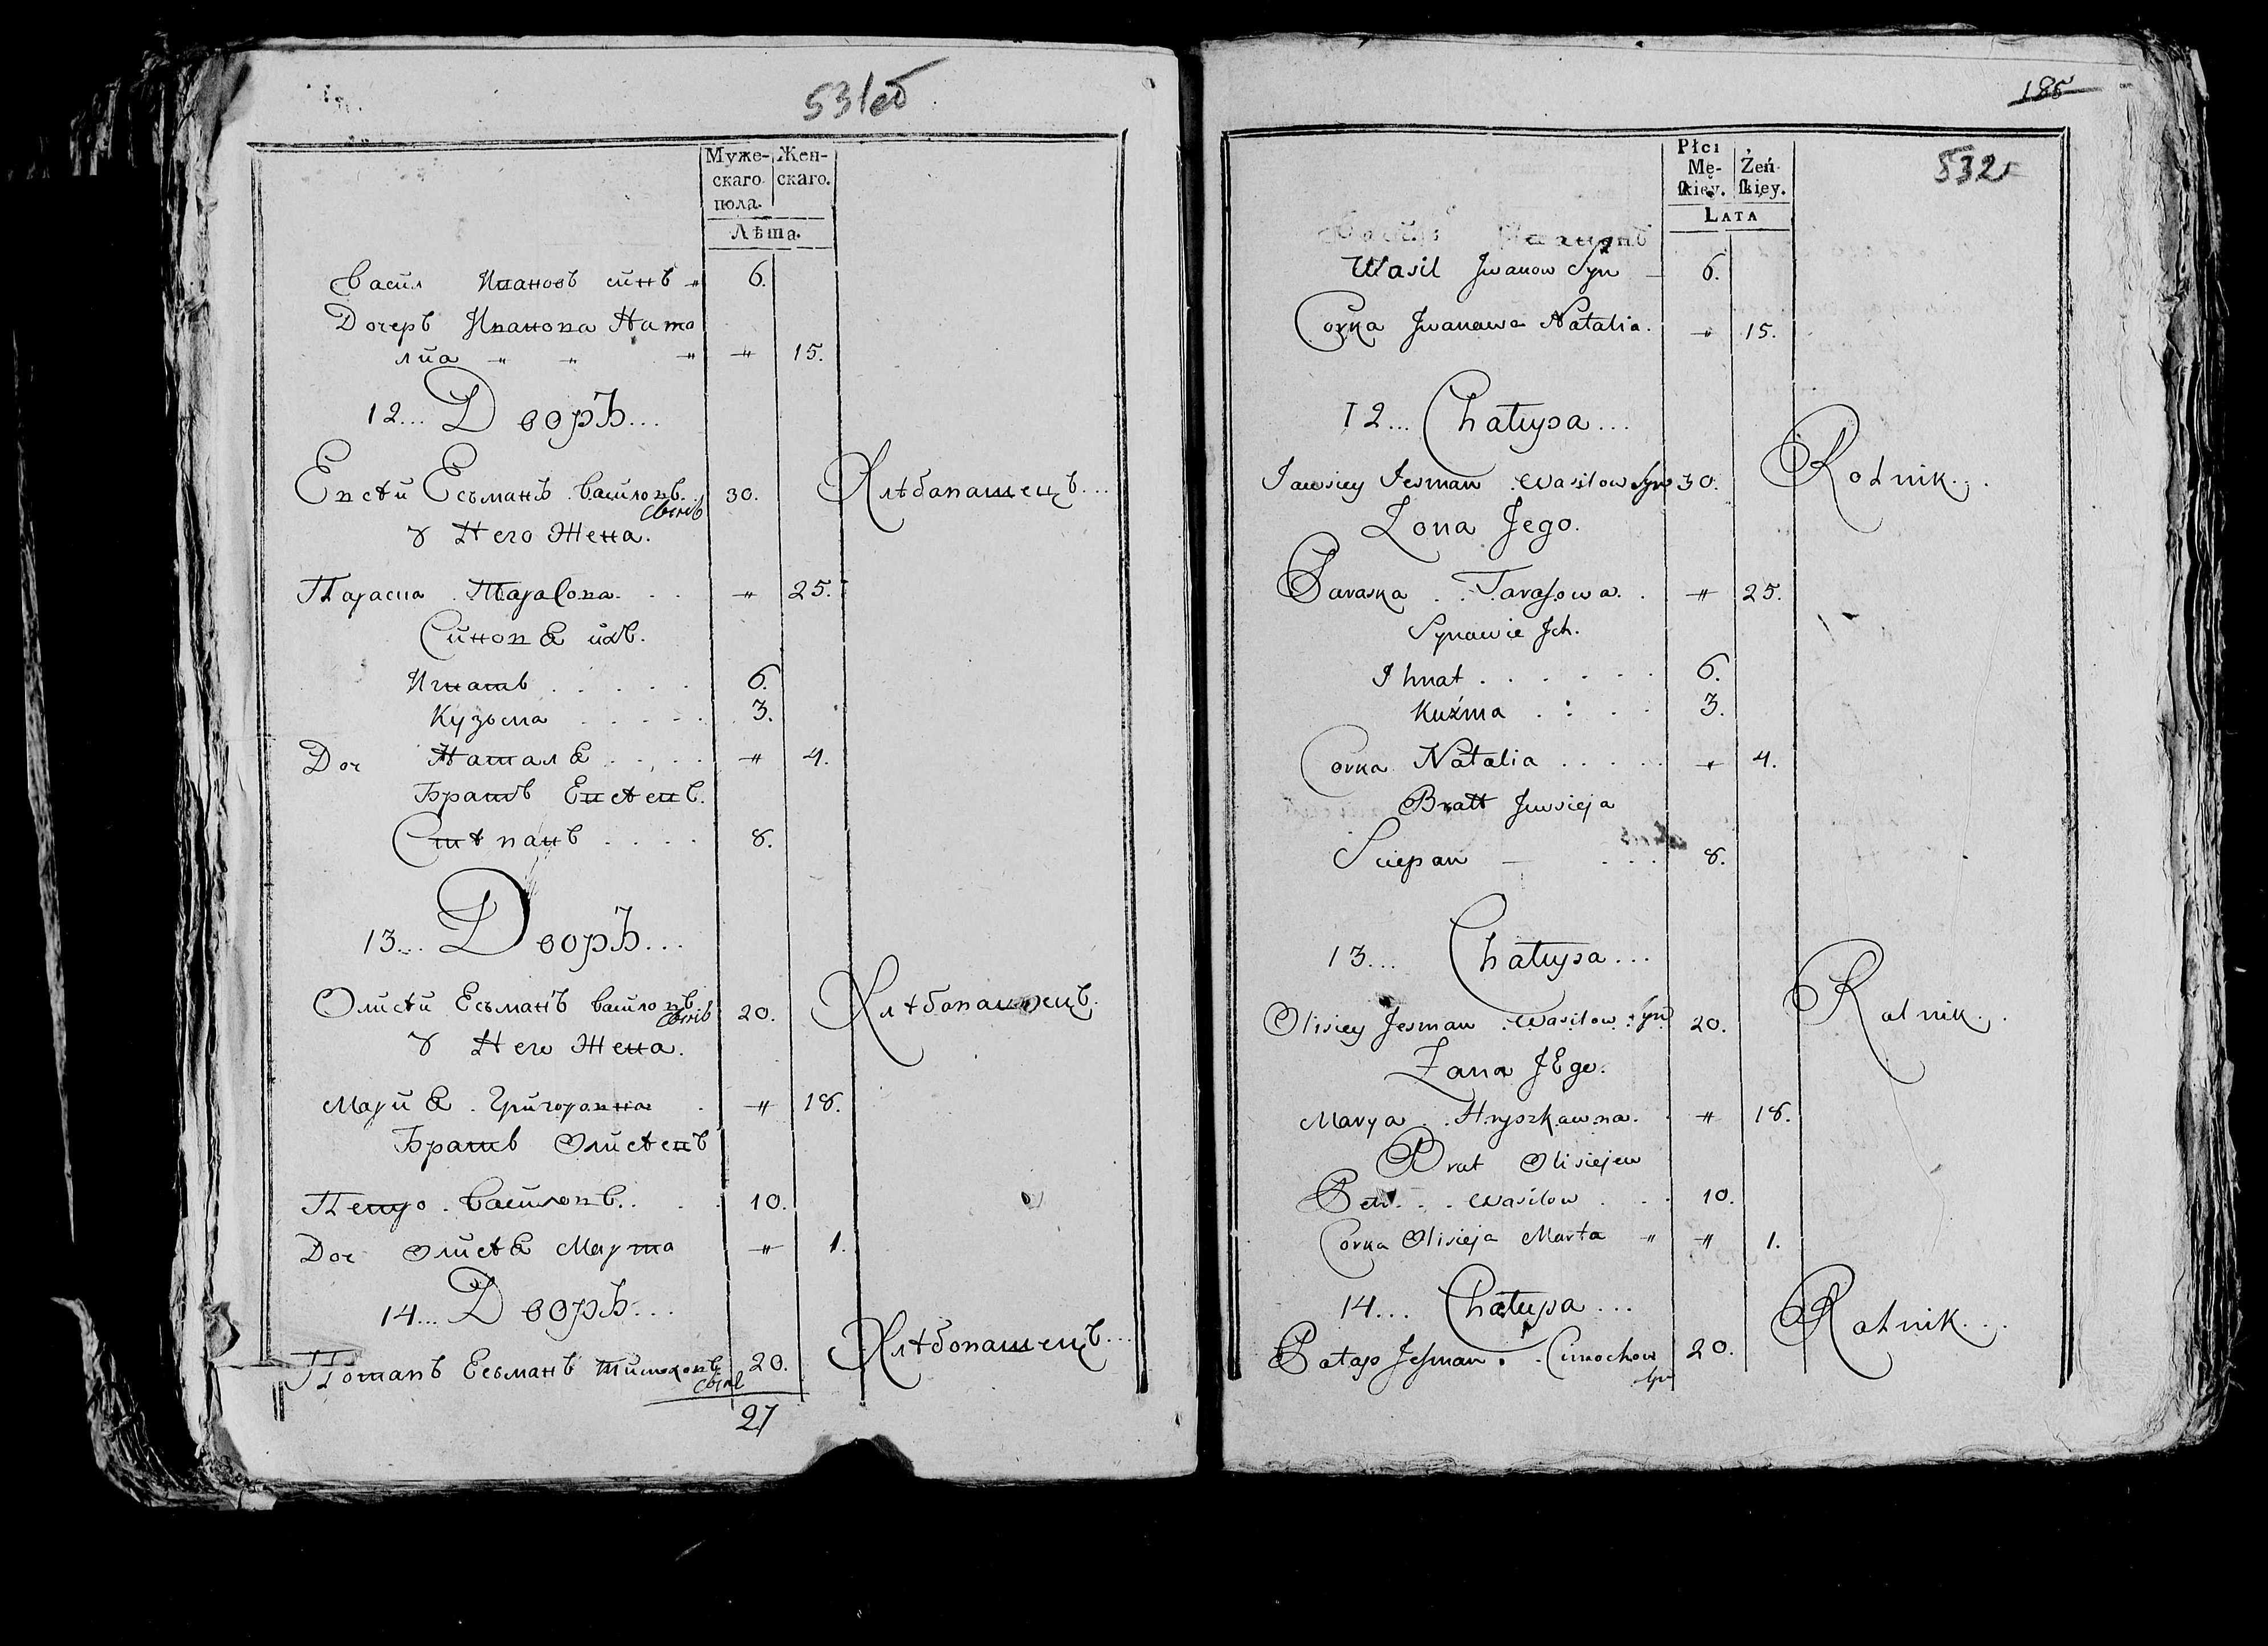 531об
Муже- Жен-
скаго скаго.
пола.
Лѣта.
Васил Ивановъ синъ " 6.
Дочеръ Иванова Ната
лиа " " " " 15.
12... Дворъ...
Евсѣй Есьманъ Василовъ 30. Хлѣбопашецъ...
сынъ
У Него Жена.
Параска Тарасова. . . " 25.
Синовѣ ихъ.
Игнатъ . . . . . 6.
Кузьма . . . . . 3.
Доч Наталѣ . . . . " 4.
Братъ Евсѣевъ.
Стѣпанъ . . . . 8.
13... Дворъ...
Олисѣй Есьманъ Василовъ 20. Хлѣбопашецъ.
сынъ
У Него Жена.
Марийѣ . Григоровна . " 18.
Братъ Олисѣевъ
Петро . Василовъ. . . 10.
Доч Олисѣѣ Марта " 1.
14... Дворъ...
Потапъ Есьманъ Тимоховъ 20. Хлѣбопашецъ...
сынъ
27
186
532
Płci
Mę- Żeń-
ſkiey. ſkiey.
LATA
Wasil Jwanow Syn — 6.
Corka Jwanawa Natalia. " 15.
12... Chałupa...
Jawsiey Jesman Wasilow Syn 30. Rolnik...
Żona Jego.
Paraska . . Tarasowa. . " 25.
Synawie Jch.
Ihnat . . . . . . 6.
Kuźma . : . . 3.
Corka Natalia . . . . . " 4.
Bratt Jewsieja
Sciepan — . . . 8.
13... Chałupa...
Olisiey Jesman . Wasilow . Syn 20. Ralnik..
Żana JEgo.
Marya . . Hryszkawna. . " 18.
Brat Olisiejew
Petr. . . Wasilow . . . 10.
Corka Olisieja Marta " " 1.
14... Chałupa...
Patap Jesman . . Cimochow 20. Ralnik...
Syn